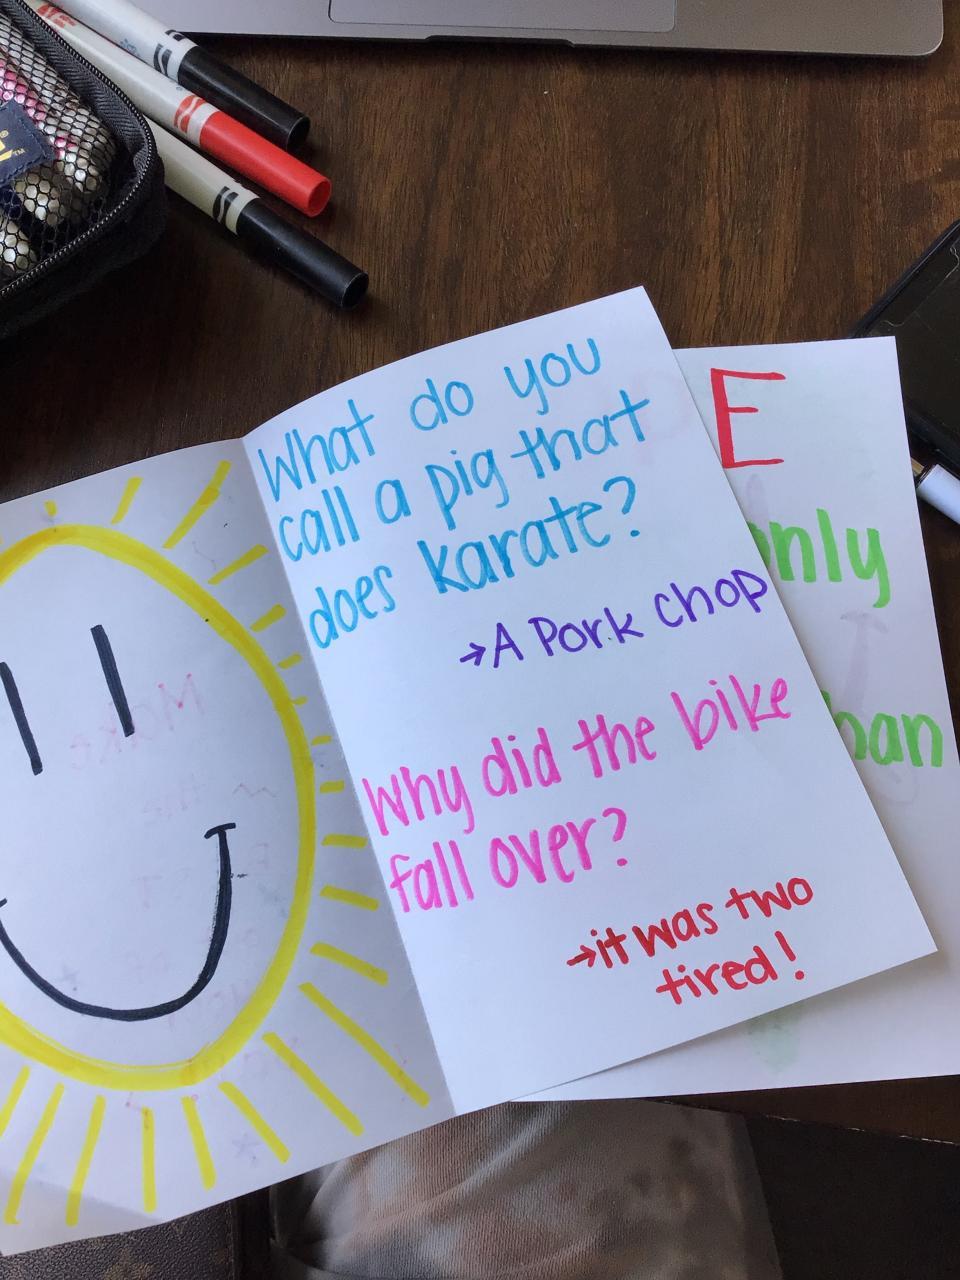 What do you
call a pig that
does karate?
→A Pork Chop
Why did the bike
fall over?
→it was two
tired!
E
only